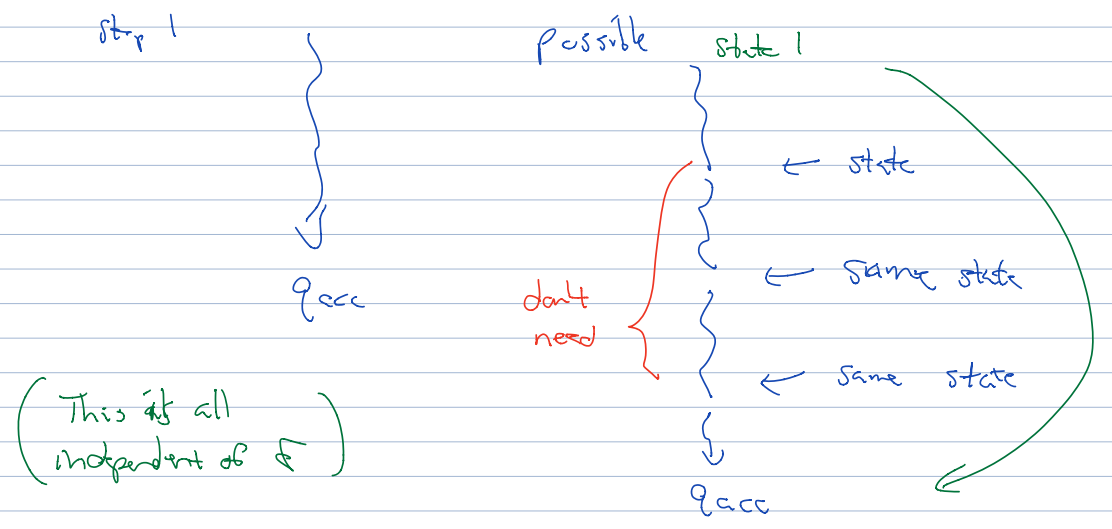 step 1
possible state 1
← state
← same state
q acc
don't
need
← same state
(This is all
independent of δ)
q acc